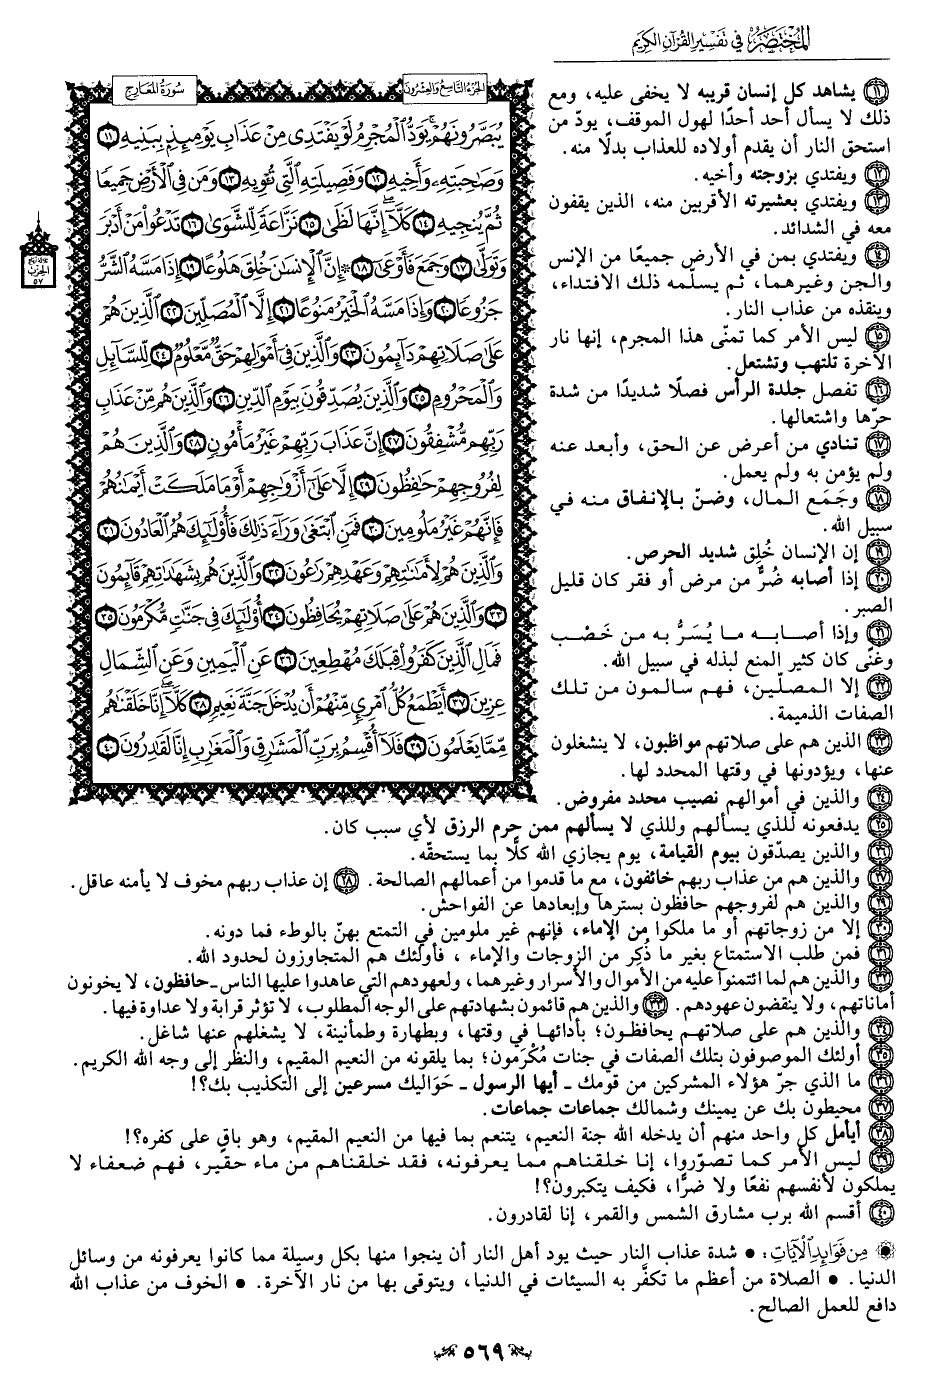 المختصر في تفسير القرآن الكريم
الجزء التاسع والعشرون
سورة المعارج
يُبَصَّرُونَهُمْ يَوَدُّ الْمُجْرِمُ لَوْ يَفْتَدِي مِنْ عَذَابِ يَوْمِئِذٍ بِبَنِيهِ ١١
وَصَاحِبَتِهِ وَأَخِيهِ ١٢ وَفَصِيلَتِهِ الَّتِي تُؤْوِيهِ ١٣ وَمَن فِي الْأَرْضِ جَمِيعًا
ثُمَّ يُنجِيهِ ١٤ كَلَّا إِنَّهَا لَظَىٰ ١٥ نَزَّاعَةً لِّلشَّوَىٰ ١٦ تَدْعُوا مَنْ أَدْبَرَ
وَتَوَلَّىٰ ١٧ وَجَمَعَ فَأَوْعَىٰ ١٨ ۞ إِنَّ الْإِنسَانَ خُلِقَ هَلُوعًا ١٩ إِذَا مَسَّهُ الشَّرُّ
جَزُوعًا ٢٠ وَإِذَا مَسَّهُ الْخَيْرُ مَنُوعًا ٢١ إِلَّا الْمُصَلِّينَ ٢٢ الَّذِينَ هُمْ
عَلَىٰ صَلَاتِهِمْ دَائِمُونَ ٢٣ وَالَّذِينَ فِي أَمْوَالِهِمْ حَقٌّ مَّعْلُومٌ ٢٤ لِّلسَّائِلِ
وَالْمَحْرُومِ ٢٥ وَالَّذِينَ يُصَدِّقُونَ بِيَوْمِ الدِّينِ ٢٦ وَالَّذِينَ هُم مِّنْ عَذَابِ
رَبِّهِم مُّشْفِقُونَ ٢٧ إِنَّ عَذَابَ رَبِّهِمْ غَيْرُ مَأْمُونٍ ٢٨ وَالَّذِينَ هُمْ
لِفُرُوجِهِمْ حَافِظُونَ ٢٩ إِلَّا عَلَىٰ أَزْوَاجِهِمْ أَوْ مَا مَلَكَتْ أَيْمَانُهُمْ
فَإِنَّهُمْ غَيْرُ مَلُومِينَ ٣٠ فَمَنِ ابْتَغَىٰ وَرَاءَ ذَٰلِكَ فَأُولَٰئِكَ هُمُ الْعَادُونَ ٣١
وَالَّذِينَ هُمْ لِأَمَانَاتِهِمْ وَعَهْدِهِمْ رَاعُونَ ٣٢ وَالَّذِينَ هُم بِشَهَادَاتِهِمْ قَائِمُونَ
٣٣ وَالَّذِينَ هُمْ عَلَىٰ صَلَاتِهِمْ يُحَافِظُونَ ٣٤ أُولَٰئِكَ فِي جَنَّاتٍ مُّكْرَمُونَ ٣٥
فَمَالِ الَّذِينَ كَفَرُوا قِبَلَكَ مُهْطِعِينَ ٣٦ عَنِ الْيَمِينِ وَعَنِ الشِّمَالِ
عِزِينَ ٣٧ أَيَطْمَعُ كُلُّ امْرِئٍ مِّنْهُمْ أَن يُدْخَلَ جَنَّةَ نَعِيمٍ ٣٨ كَلَّا إِنَّا خَلَقْنَاهُم
مِّمَّا يَعْلَمُونَ ٣٩ فَلَا أُقْسِمُ بِرَبِّ الْمَشَارِقِ وَالْمَغَارِبِ إِنَّا لَقَادِرُونَ ٤٠
الحزب
٥٧
١١ يشاهد كل إنسان قريبه لا يخفى عليه، ومع
ذلك لا يسأل أحد أحدًا لهول الموقف، يودّ من
استحق النار أن يقدم أولاده للعذاب بدلًا منه.
١٢ ويفتدي بزوجته وأخيه.
١٣ ويفتدي بعشيرته الأقربين منه، الذين يقفون
معه في الشدائد.
١٤ ويفتدي بمن في الأرض جميعًا من الإنس
والجن وغيرهما، ثم يسلّمه ذلك الافتداء،
وينقذه من عذاب النار.
١٥ ليس الأمر كما تمنّى هذا المجرم، إنها نار
الآخرة تلتهب وتشتعل.
١٦ تفصل جلدة الرأس فصلًا شديدًا من شدة
حرّها واشتعالها.
١٧ تنادي من أعرض عن الحق، وأبعد عنه
ولم يؤمن به ولم يعمل.
١٨ وجَمَع المال، وضنّ بالإنفاق منه في
سبيل الله.
١٩ إن الإنسان خُلِق شديد الحرص.
٢٠ إذا أصابه ضُرٌّ من مرض أو فقر كان قليل
الصبر.
٢١ وإذا أصابه ما يُسَرُّ به من خَصْب
وغنًى كان كثير المنع لبذله في سبيل الله.
٢٢ إلا المصلّين، فهم سالمون من تلك
الصفات الذميمة.
٢٣ الذين هم على صلاتهم مواظبون، لا ينشغلون
عنها، ويؤدونها في وقتها المحدد لها.
٢٤ والذين في أموالهم نصيب محدد مفروض.
٢٥ يدفعونه للذي يسألهم وللذي لا يسألهم ممن حرم الرزق لأي سبب كان.
٢٦ والذين يصدّقون بيوم القيامة، يوم يجازي الله كلًّا بما يستحقّه.
٢٧ والذين هم من عذاب ربهم خائفون، مع ما قدموا من أعمالهم الصالحة. ٢٨ إن عذاب ربهم مخوف لا يأمنه عاقل.
٢٩ والذين هم لفروجهم حافظون بسترها وإبعادها عن الفواحش.
٣٠ إلا من زوجاتهم أو ما ملكوا من الإماء، فإنهم غير ملومين في التمتع بهنّ بالوطء فما دونه.
٣١ فمن طلب الاستمتاع بغير ما ذُكِر من الزوجات والإماء، فأولئك هم المتجاوزون لحدود الله.
٣٢ والذين هم لما ائتمنوا عليه من الأموال والأسرار وغيرهما، ولعهودهم التي عاهدوا عليها الناس - حافظون، لا يخونون
أماناتهم، ولا ينقضون عهودهم. ٣٣ والذين هم قائمون بشهادتهم على الوجه المطلوب، لا تؤثر قرابة ولا عداوة فيها.
٣٤ والذين هم على صلاتهم يحافظون؛ بأدائها في وقتها، وبطهارة وطمأنينة، لا يشغلهم عنها شاغل.
٣٥ أولئك الموصوفون بتلك الصفات في جنات مُكْرَمون؛ بما يلقونه من النعيم المقيم، والنظر إلى وجه الله الكريم.
٣٦ ما الذي جرّ هؤلاء المشركين من قومك - أيها الرسول - حَوَاليك مسرعين إلى التكذيب بك؟!
٣٧ محيطون بك عن يمينك وشمالك جماعات جماعات.
٣٨ أيأمل كل واحد منهم أن يدخله الله جنة النعيم، يتنعم بما فيها من النعيم المقيم، وهو باقٍ على كفره؟!
٣٩ ليس الأمر كما تصوّروا، إنا خلقناهم مما يعرفونه، فقد خلقناهم من ماء حقير، فهم ضعفاء لا
يملكون لأنفسهم نفعًا ولا ضرًّا، فكيف يتكبرون؟!
٤٠ أقسم الله برب مشارق الشمس والقمر، إنا لقادرون.
من فوائد الآيات: • شدة عذاب النار حيث يود أهل النار أن ينجوا منها بكل وسيلة مما كانوا يعرفونه من وسائل
الدنيا. • الصلاة من أعظم ما تكفَّر به السيئات في الدنيا، ويتوقى بها من نار الآخرة. • الخوف من عذاب الله
دافع للعمل الصالح.
٥٦٩